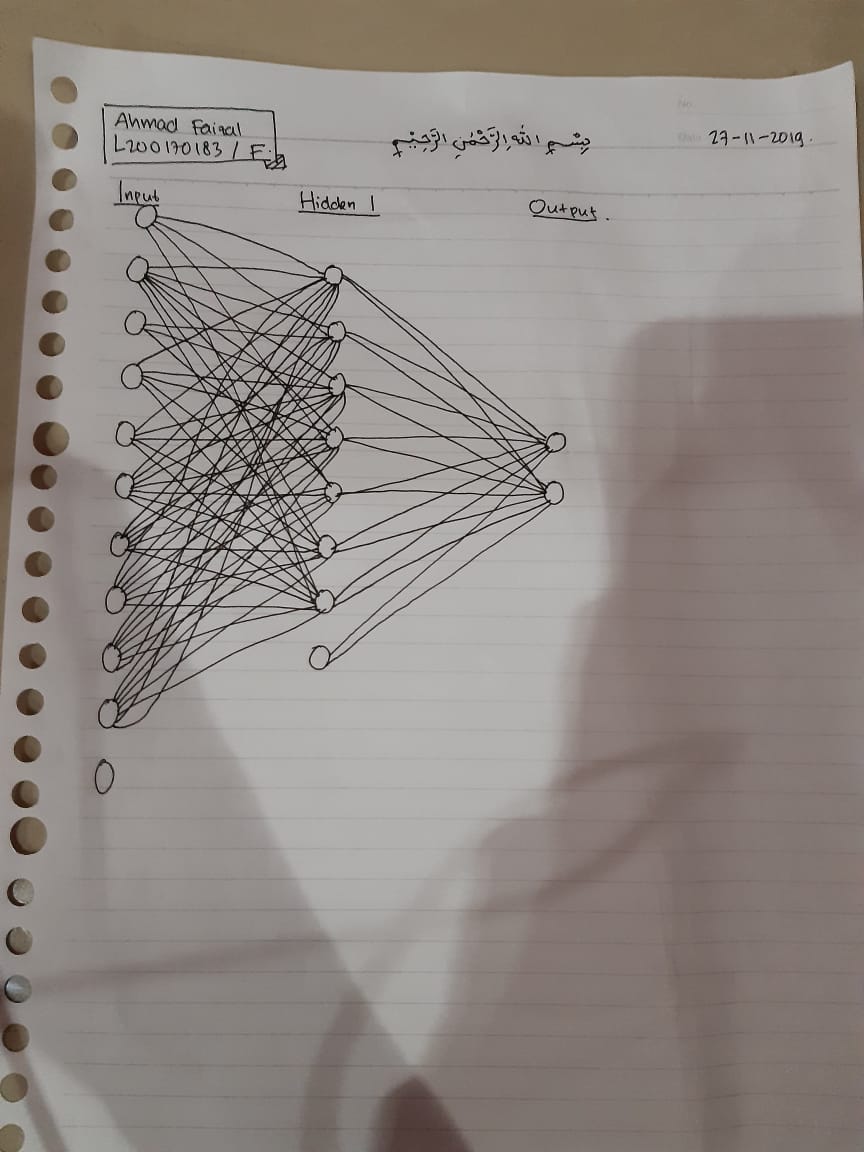 Ahmad Faisal
L200170183 / F
بِسْمِ اللهِ الرَّحْمٰنِ الرَّحِيْمِ
No
Date 27-11-2019.
Input
Hidden 1
Output.